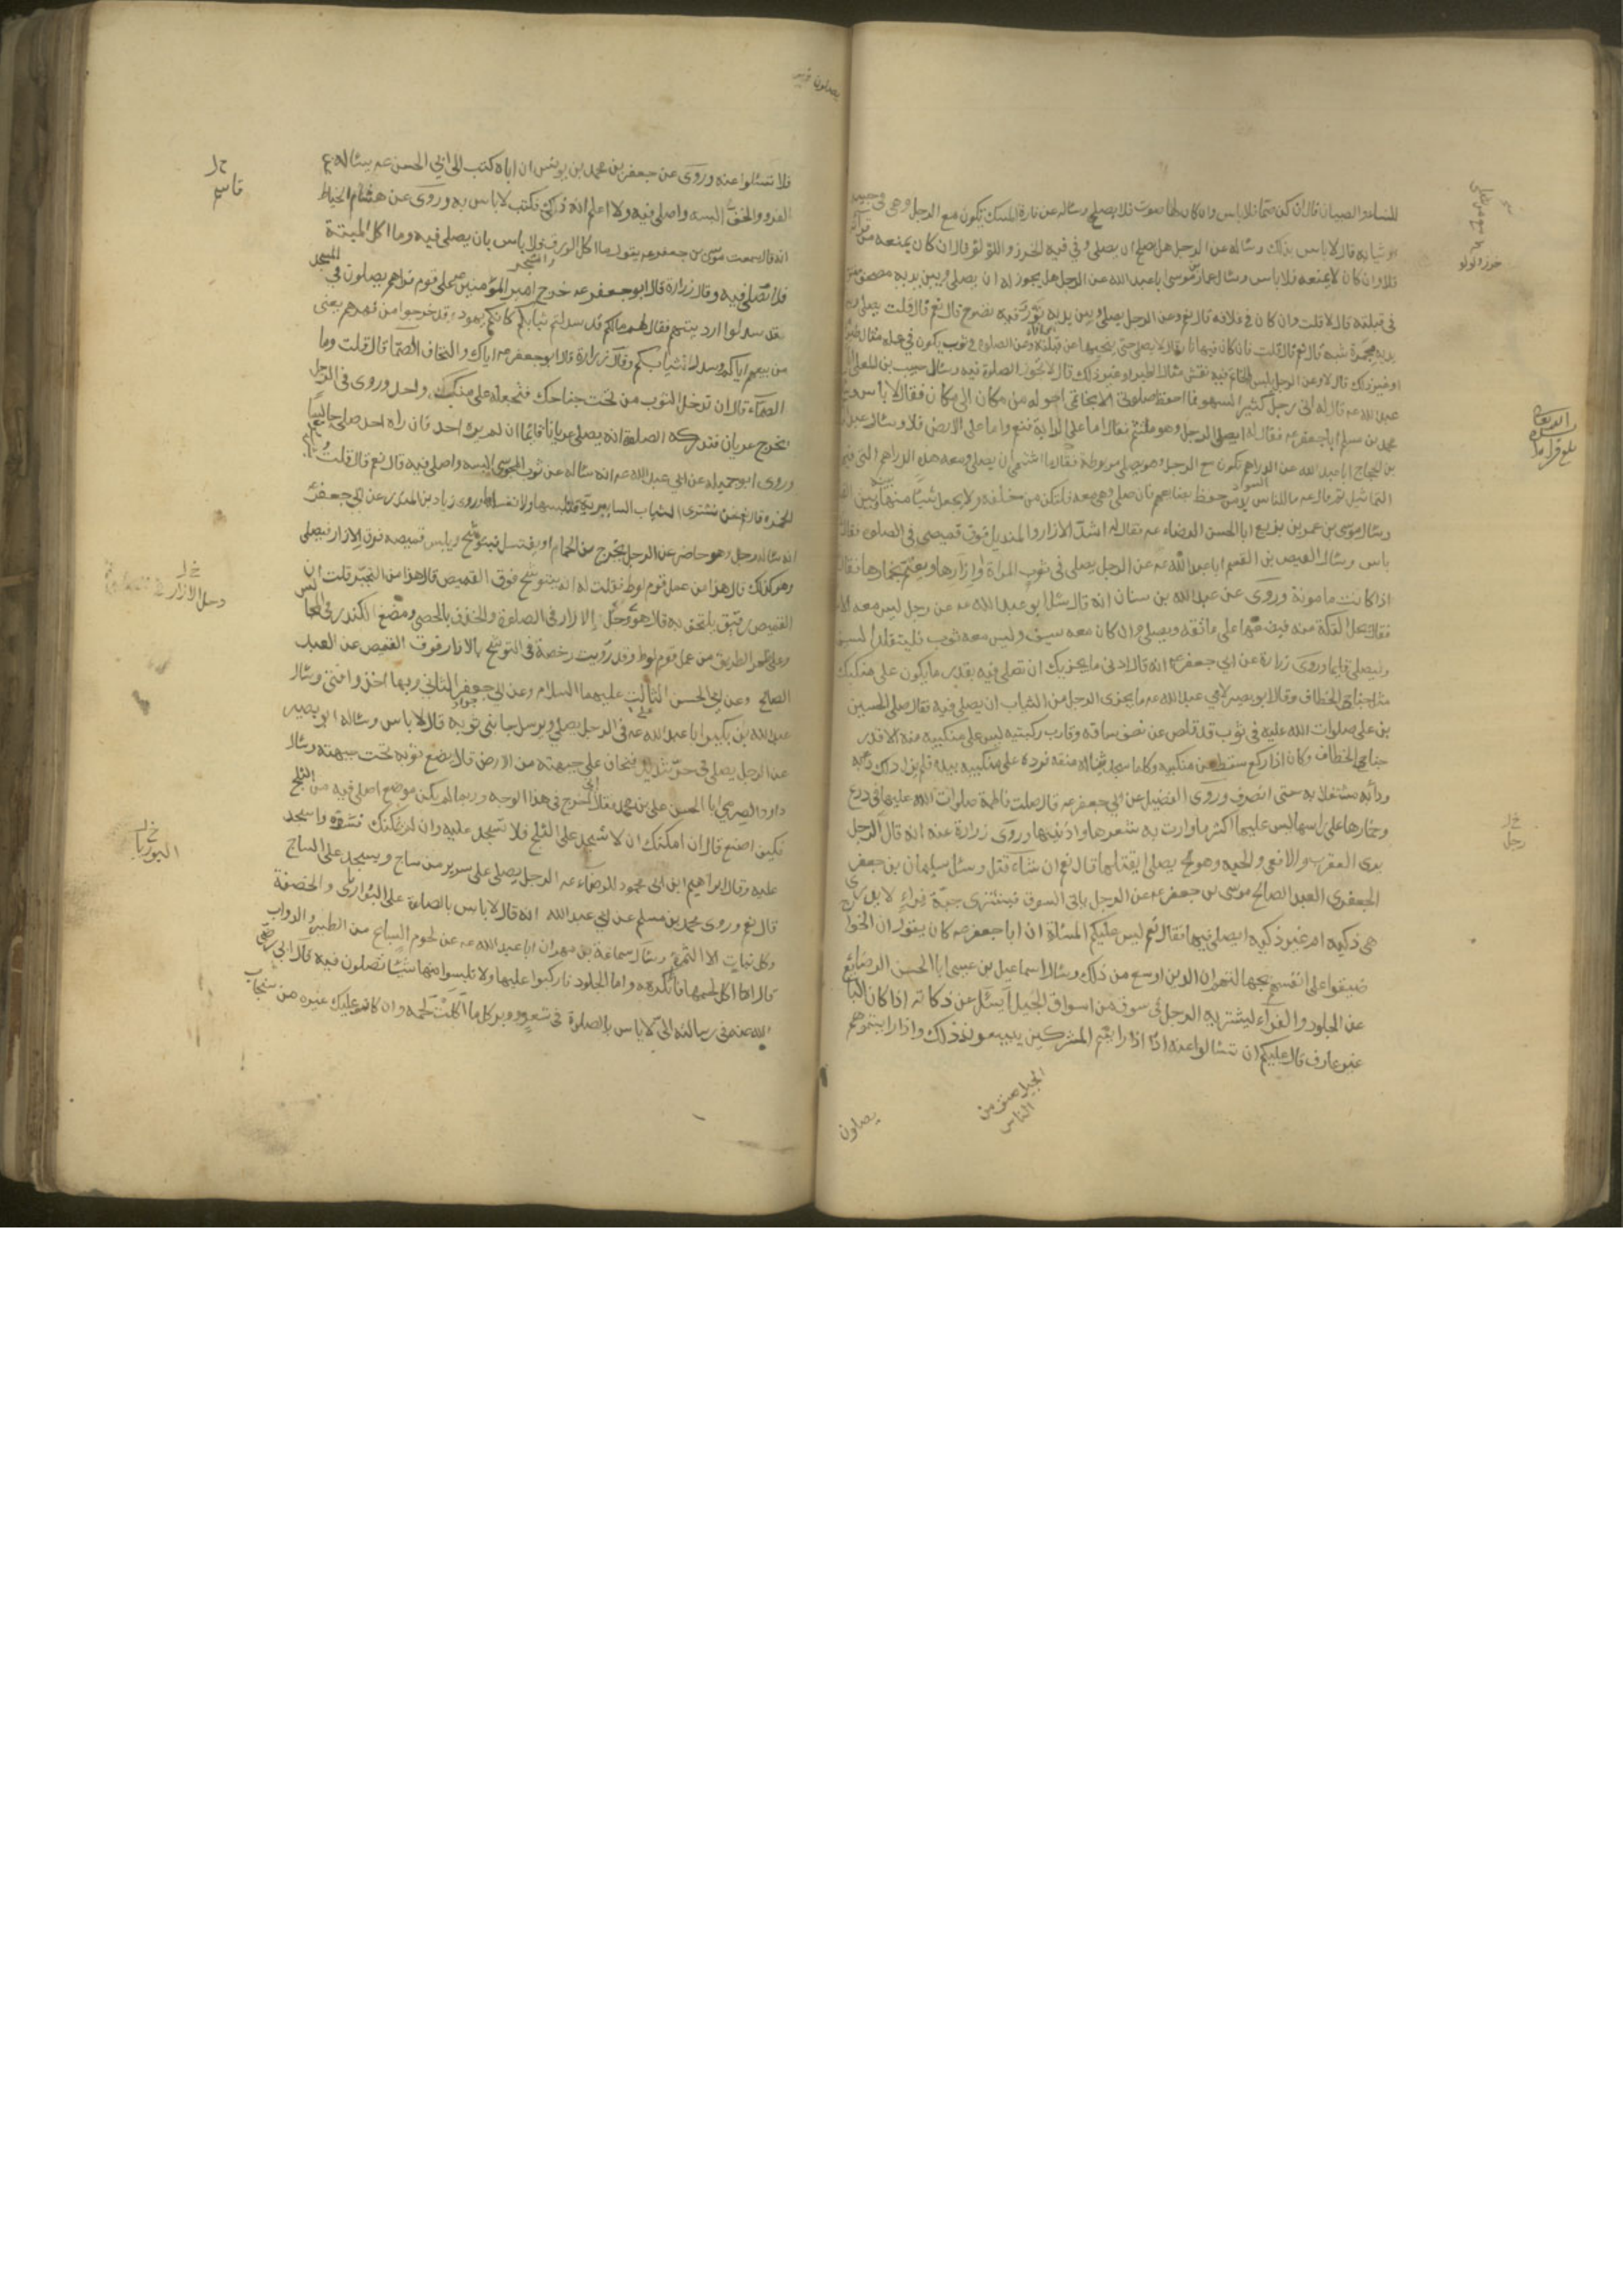 للنساء والصبيان قال ان كن صما فلا باس وان كان لها صوت فلا يصلح وسئاله عن فارة المسك تكون مع الرجل وهى فى جيبه
او ثيابه قال لا باس بذلك وسئاله عن الرجل هل يصلح ان يصلى وفى فيه الخرز واللؤلؤ قال ان كان يمنعه من قرآته
فلا وان كان لا يمنعه فلا باس وسئال عمار بن موسى ابا عبد الله عن الرجل هل يجوز له ان يصلى وبين يديه مصحف مفتوح
فى قبلته قال لا قلت وان كان فى غلافه قال نعم وعن الرجل يصلى وبين يديه تور فيه نضوح قال نعم قال قلت يصلى وبين
يديه مجمرة شبه قال نعم قال قلت فان كان فيها نار قال لا يصلى حتى ينحيها عن قبلته وعن الصلوة فى ثوب يكون فى علمه مثال طير
او غير ذلك قال لا وعن الرجل يلبس الخاتم فيه نقش مثال الطير او غير ذلك قال لا يجوز الصلوة فيه وسئال حبيب بن المعلى ابا
عبد الله عم قال له انى رجل كثير السهو فما احفظ صلوتى الا بخاتمى احوله من مكان الى مكان فقال لا باس وسئال
محمد بن مسلم ابا جعفر عم فقال له ايصلى الرجل وهو ملثم فقال اما على الدابة فنعم واما على الارض فلا وسئال عبد الرحمن
بن الحجاج ابا عبد الله عن الدراهم تكون مع الرجل وهو يصلى مربوطة فقال ما اشتهى ان يصلى ومعه هذه الدراهم التى فيها
التماثيل ثم قال عم ما للناس بد من حفظ بضايعهم فان صلى وهى معه فلتكن من خلفه ولا يجعل شيئا منها بينه وبين القبلة
وسئال موسى بن عمر بن بزيع ابا الحسن الرضاء عم فقال له اشد الازار والمنديل فوق قميصى فى الصلوة فقال لا
باس وسئال العيص بن القسم ابا عبد الله عم عن الرجل يصلى فى ثوب المراة وازارها ويعتم بخمارها فقال نعم
اذا كانت مامونة وروى عن عبد الله بن سنان انه قال سئل ابو عبد الله عم عن رجل ليس معه الا سراويل
فقال يحل التكة منه فيضعها على عاتقه ويصلى وان كان معه سيف وليس معه ثوب فليتقلد السيف
وليصلى قايما وروى زرارة عن ابى جعفر عم انه قال ادنى ما يجزيك ان تصلى فيه بقدر ما يكون على منكبيك
مثل جناحى الخطاف وقال ابو بصير لابى عبد الله عم ما يجزى الرجل من الثياب ان يصلى فيه فقال صلى الحسين
بن على صلوات الله عليه فى ثوب قد قلص عن نصف ساقه وقارب ركبتيه ليس على منكبيه منه الا قدر
جناحى الخطاف وكان اذا ركع سقط عن منكبيه وكلما سجد يناله عنقه فرده على منكبيه بيده فلم يزل ذلك دابه
ودابه مشتغلا به حتى انصرف وروى الفضيل عن ابى جعفر عم قال صلت فاطمة صلوات الله عليها فى درع
وخمارها على راسها ليس عليها اكثر ما وارت به شعرها واذنيها وروى زرارة عنه انه قال الرجل
يرى العقرب والافعى والحيه وهو يصلى ايقتلها قال نعم ان شاء فعل وسئل سليمان بن جعفر
الجعفرى العبد الصالح موسى بن جعفر عم عن الرجل ياتى السوق فيشترى جبة فراء لا يدرى
هى ذكيه ام غير ذكيه ايصلى فيها فقال نعم ليس عليكم المسئلة ان ابا جعفر عم كان يقول ان الخوارج
ضيقوا على انفسهم بجهالتهم وان الدين اوسع من ذلك وسئال اسماعيل بن عيسى ابا الحسن الرضا عم
عن الجلود والفراء يشتريه الرجل فى سوق من اسواق الجبل ايسئل عن ذكاته اذا كان البايع
غير عارف قال عليكم ان تسئالوا عنه اذا رايتم المشركين يبيعون ذلك واذا رايتموهم
يصلون
الجبل صنف من
الناس
خرز ولولو
خ ل
رجل
فلا تسئلوا عنه وروى عن جعفر بن محمد بن يونس ان اباه كتب الى ابى الحسن عم يسئاله عن
الفرو والخف البسه واصلى فيه ولا اعلم انه ذكى فكتب لا باس به وروى عن هشام الخياط
انه قال سمعت موسى بن جعفر عم يقول ما اكل الورق والشجر فلا باس بان يصلى فيه وما اكل الميتة
فلا تصلى فيه وقال زرارة قال ابو جعفر عم خرج امير المؤمنين عم على قوم فراهم يصلون فى المسجد
قد سدلوا ارديتهم فقال لهم مالكم قد سدلتم ثيابكم كانكم يهود قد خرجوا من فهرهم يعنى
من بيعهم اياكم وسدل ثيابكم وقال زرارة قال ابو جعفر عم اياك والتحاف الصما قال قلت وما
الصماء قال ان تدخل الثوب من تحت جناحك فتجعله على منكب واحد وروى فى الرجل
يخرج عريان فتدركه الصلوة انه يصلى عريانا قائما ان لم يره احد فان راه احد صلى جالسا
وروى ابو جميله عن ابى عبد الله عم انه سئاله عن ثوب المجوسى البسه واصلى فيه قال نعم قال قلت
الخمر قال نعم نحن نشترى الثياب السابرية فنلبسها ولا نغسلها وروى زياد بن المنذر عن ابى جعفر
انه سئاله رجل وهو حاضر عن الرجل يخرج من الحمام او يغتسل فيتوشح ويلبس قميصه فوق الازار فيصلى
وهو كذلك قال هذا من عمل قوم لوط فقلت له انه يتوشح فوق القميص قال هذا من التجبر قلت ان
القميص رقيق يلتحف به قال هو وحل الازار فى الصلوة والخذف بالحصى ومضغ الكندر فى المجالس
وعلى ظهر الطريق من عمل قوم لوط وقد رويت رخصة فى التوشح بالازار فوق القميص عن العبد
الصالح وعن ابى الحسن الثالث عليهما السلام وعن ابى جعفر الثانى وبها اخذ وافتى وسئال
عبد الله بن بكير ابا عبد الله عم فى الرجل يصلى ويرسل جانبى ثوبه قال لا باس وسئاله ابو بصير
عن الرجل يصلى فى حر شديد فيخاف على جبهته من الارض قال يضع ثوبه تحت جبهته وسئال
داود الصرمى ابا الحسن على بن محمد فقال انى اخرج فى هذا الوجه وربما لم يكن موضع اصلى فيه من الثلج
فكيف اصنع قال ان امكنك ان لا تسجد على الثلج فلا تسجد عليه وان لم يمكنك فسوه واسجد
عليه وقال ابراهيم ابن ابى محمود للرضاء عم الرجل يصلى على سرير من ساج ويسجد على الساج
قال نعم وروى محمد بن مسلم عن ابى عبد الله انه قال لا باس بالصلوة على البواريا والخصفة
وكل نبات الا الثمرة وسئال سماعة بن مهران ابا عبد الله عم عن لحوم السباع من الطير والدواب
قال اما اكل لحمها فانا نكرهه واما الجلود فاركبوا عليها ولا تلبسوا منها شيئا تصلون فيه قال ابى رضى
الله عنه فى رسالته الى لا باس بالصلوة فى شعر ووبر كل ما اكلت لحمه وان كان عليك غيره من سنجاب
خ ل
قاسم
خ ل
وحل الازار
خ ل
البوريا